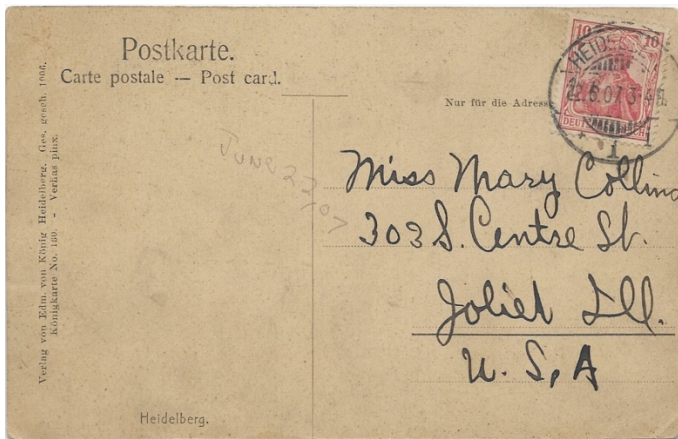 Postkarte.
Carte postale — Post card.
Nur für die Adresse
10 10
DEUTSCHES REICH
HEIDELBERG
22.6.07.3-4N.
1
June 22/07
Miss Mary Collins
303 S. Centre St.
Joliet Ill.
U.S.A
Verlag von Edm. von König Heidelberg. Ges. gesch. 1906.
Königkarte No. 160. - Verkas pinx.
Heidelberg.